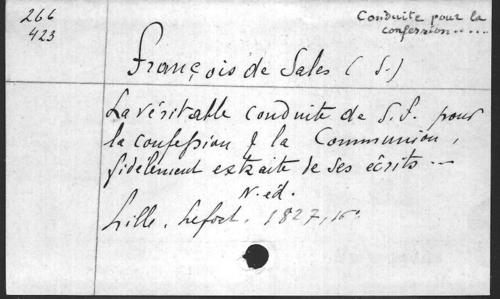 266
423
Conduite pour la
confession.....
François de Sales (S.)
La véritable conduite de S. F. pour
la confession & la Communion,
fidèlement extraite de ses écrits...
N. éd.
Lille, Lefort, 1827, 16º